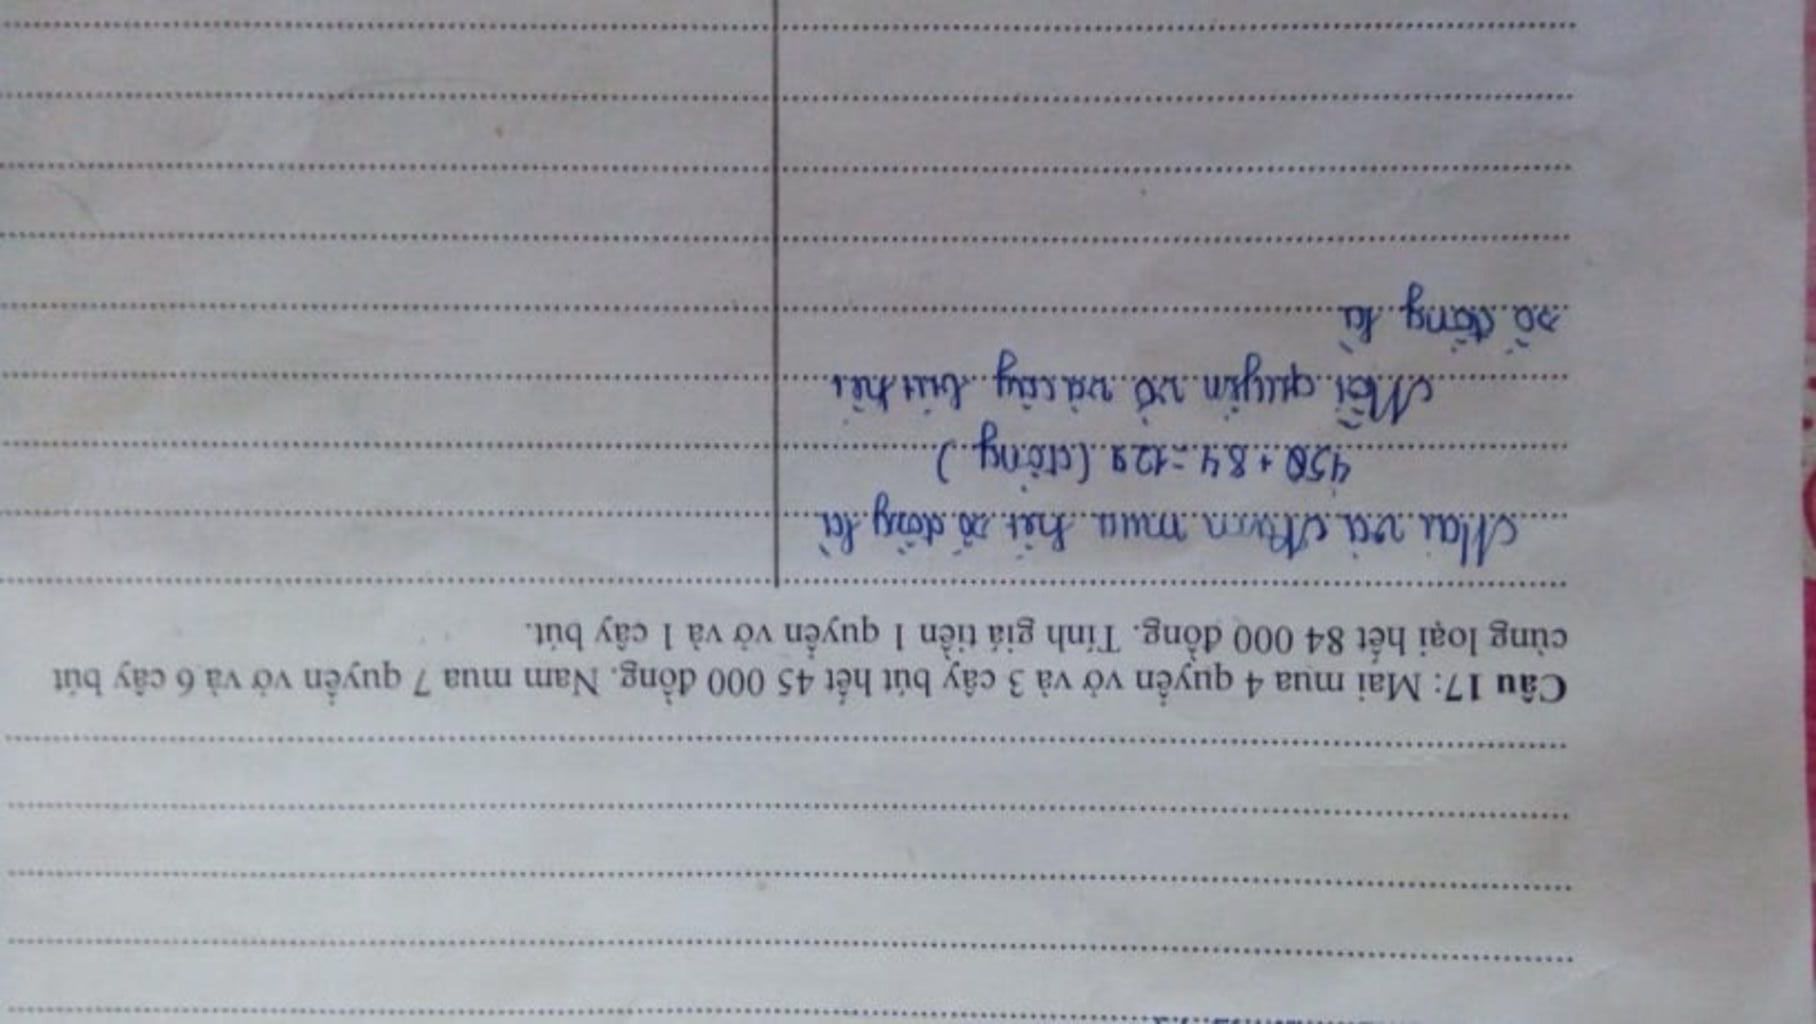 Câu 17: Mai mua 4 quyển vở và 3 cây bút hết 45 000 đồng. Nam mua 7 quyển vở và 6 cây bút
cùng loại hết 84 000 đồng. Tính giá tiền 1 quyển vở và 1 cây bút.
Mai và Nam mua hết số đồng là
450 + 84 = 129 (đồng)
Mỗi quyển vở và cây bút hết
số đồng là